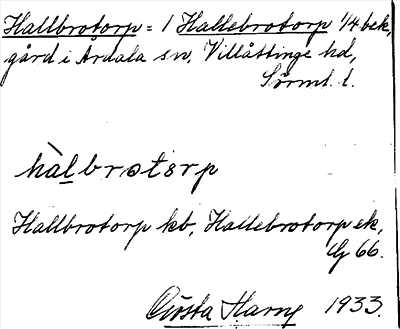 Hallbrotorp = 1 Hallebrotorp 1/4 bek,
gård i Årdala sn, Villåttinge hd,
Sörml. l.
hàlbrotorp
Hallbrotorp kb, Hallebrotorp ek,
G 66.
Gösta Harne 1933.